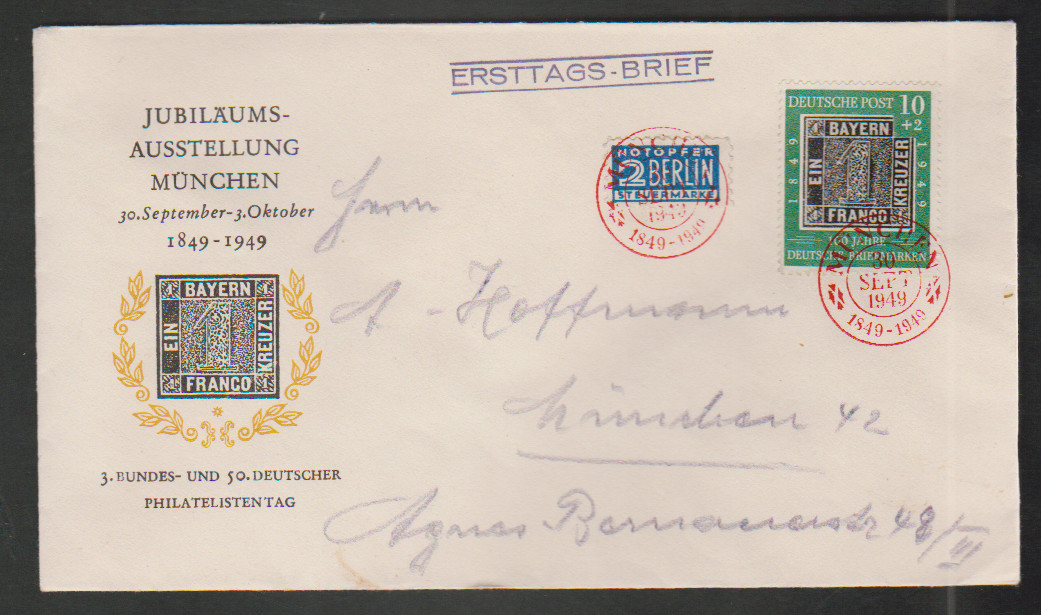 ERSTTAGS-BRIEF
JUBILÄUMS-
AUSSTELLUNG
MÜNCHEN
30. September-3. Oktober
1849-1949
1 BAYERN 1
EIN 1 KREUZER
1 FRANCO 1
3. BUNDES- UND 50. DEUTSCHER
PHILATELISTENTAG
NOTOPFER
2 BERLIN
STEUERMARKE
MÜNCHEN
1949
1849-1949
DEUTSCHE POST 10
+2
BAYERN
1849 EIN 1 KREUZER 1949
FRANCO
100 JAHRE
DEUTSCHE BRIEFMARKEN
MÜNCHEN
30
SEPT
1949
1849-1949
Herrn
A - Hoffmann
München 42
Agnes Bernauerstr 48/III